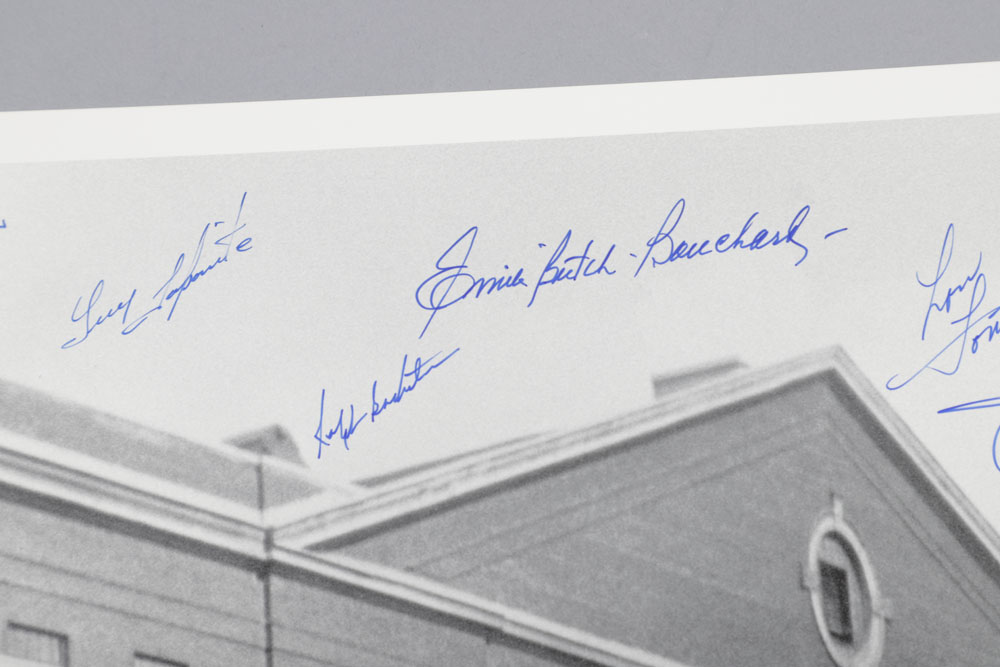 Guy Lapointe
Emile "Butch" Bouchard -
Ralph Backstrom
Lou